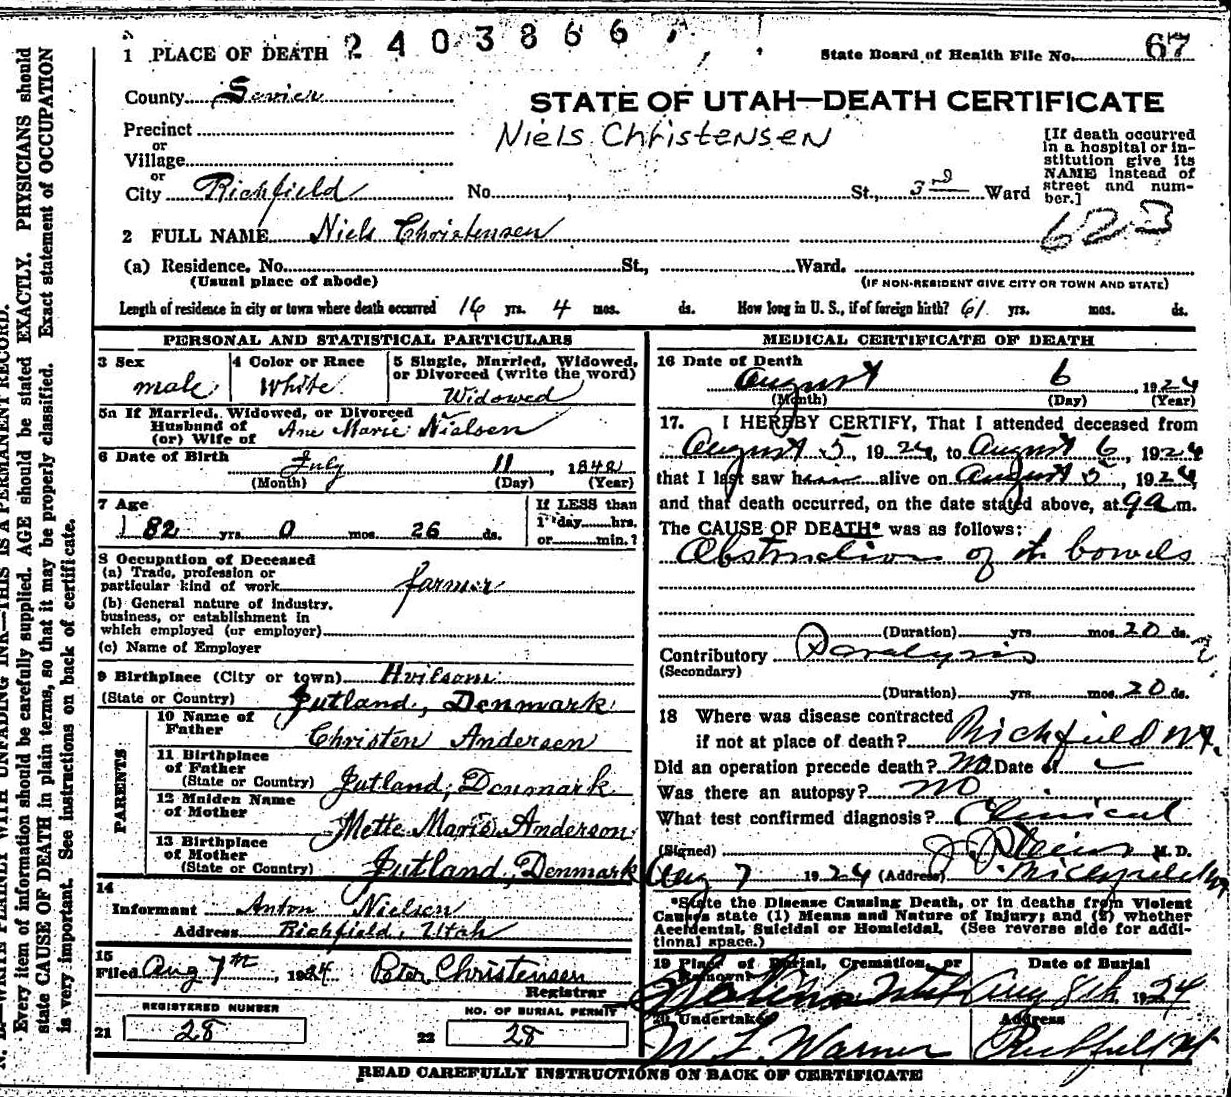 2403866
1 PLACE OF DEATH
State Board of Health File No. 67
County Sevier
STATE OF UTAH—DEATH CERTIFICATE
Niels Christensen
Precinct
or
Village
or
City Richfield No. St., 3rd Ward
[If death occurred
in a hospital or in-
stitution give its
NAME instead of
street and num-
ber.]
623
2 FULL NAME Niels Christensen
(a) Residence. No. St., Ward.
(Usual place of abode) (IF NON-RESIDENT GIVE CITY OR TOWN AND STATE)
Length of residence in city or town where death occurred 16 yrs. 4 mos. ds. How long in U. S., if of foreign birth? 61 yrs. mos. ds.
PERSONAL AND STATISTICAL PARTICULARS
3 Sex
male
4 Color or Race
White
5 Single, Married, Widowed,
or Divorced (write the word)
Widowed
5a If Married, Widowed, or Divorced
Husband of
(or) Wife of Ane Marie Nielsen
6 Date of Birth July 11, 1842
(Month) (Day) (Year)
7 Age
82 yrs. 0 mos. 26 ds.
If LESS than
1 day hrs.
or min.?
8 Occupation of Deceased
(a) Trade, profession or
particular kind of work farmer
(b) General nature of industry,
business, or establishment in
which employed (or employer)
(c) Name of Employer
9 Birthplace (City or town) Hvilsom
(State or Country) Jutland, Denmark
PARENTS
10 Name of
Father Christen Andersen
11 Birthplace
of Father
(State or Country) Jutland, Denmark
12 Maiden Name
of Mother Mette Marie Anderson
13 Birthplace
of Mother
(State or Country) Jutland, Denmark
14
Informant Anton Nielsen
Address Richfield, Utah
15
Filed Aug 7th, 1924 Peter Christensen
Registrar
REGISTERED NUMBER
21 28
NO. OF BURIAL PERMIT
22 28
MEDICAL CERTIFICATE OF DEATH
16 Date of Death
August 6, 1924
(Month) (Day) (Year)
17. I HEREBY CERTIFY, That I attended deceased from
August 5, 1924, to August 6, 1924
that I last saw him alive on August 5, 1924,
and that death occurred, on the date stated above, at 9a m.
The CAUSE OF DEATH* was as follows:
Obstruction of the bowels
(Duration) yrs. mos. 20 ds.
Contributory Paralysis
(Secondary)
(Duration) yrs. mos. 20 ds.
18 Where was disease contracted
if not at place of death? Richfield Ut.
Did an operation precede death? no Date of
Was there an autopsy? no
What test confirmed diagnosis? Clinical
(Signed) M. D.
Aug 7 1924 (Address) Richfield Ut
*State the Disease Causing Death, or in deaths from Violent
Causes state (1) Means and Nature of Injury; and (2) whether
Accidental, Suicidal or Homicidal. (See reverse side for addi-
tional space.)
19 Place of Burial, Cremation, or
Removal
Date of Burial
Aug 8th 1924
20 Undertaker
W L Warner
Address
Richfield Ut
READ CAREFULLY INSTRUCTIONS ON BACK OF CERTIFICATE
N. B.—WRITE PLAINLY WITH UNFADING INK—THIS IS A PERMANENT RECORD.
Every item of information should be carefully supplied. AGE should be stated EXACTLY. PHYSICIANS should
state CAUSE OF DEATH in plain terms, so that it may be properly classified. Exact statement of OCCUPATION
is very important. See instructions on back of certificate.